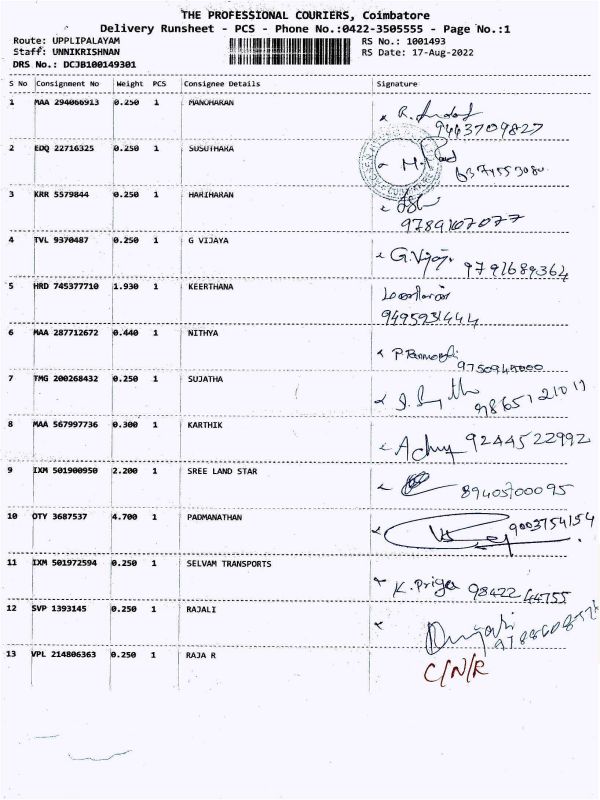 THE PROFESSIONAL COURIERS, Coimbatore
Delivery Runsheet - PCS - Phone No.:0422-3505555 - Page No.:1
Route: UPPLIPALAYAM RS No.: 1001493
Staff: UNNIKRISHNAN RS Date: 17-Aug-2022
DRS No.: DCJB100149301
S No Consignment No Weight PCS Consignee Details Signature
1 MAA 294066913 0.250 1 MANOHARAN
9443709827
2 EDQ 22716325 0.250 1 SUSUTHARA
3 KRR 5579844 0.250 1 HARIHARAN
9789167077
4 TVL 9370487 0.250 1 G VIJAYA G.Vijay 9791689364
5 HRD 745377710 1.930 1 KEERTHANA
9495931444
6 MAA 287712672 0.440 1 NITHYA
7 TMG 200268432 0.250 1 SUJATHA
8 MAA 567997736 0.300 1 KARTHIK 9244522992
9 IXM 501900950 2.200 1 SREE LAND STAR 8940570095
10 OTY 3687537 4.700 1 PADMANATHAN 9003754154
11 IXM 501972594 0.250 1 SELVAM TRANSPORTS K.Priya 98422 44755
12 SVP 1393145 0.250 1 RAJALI
13 VPL 214806363 0.250 1 RAJA R C/N/R